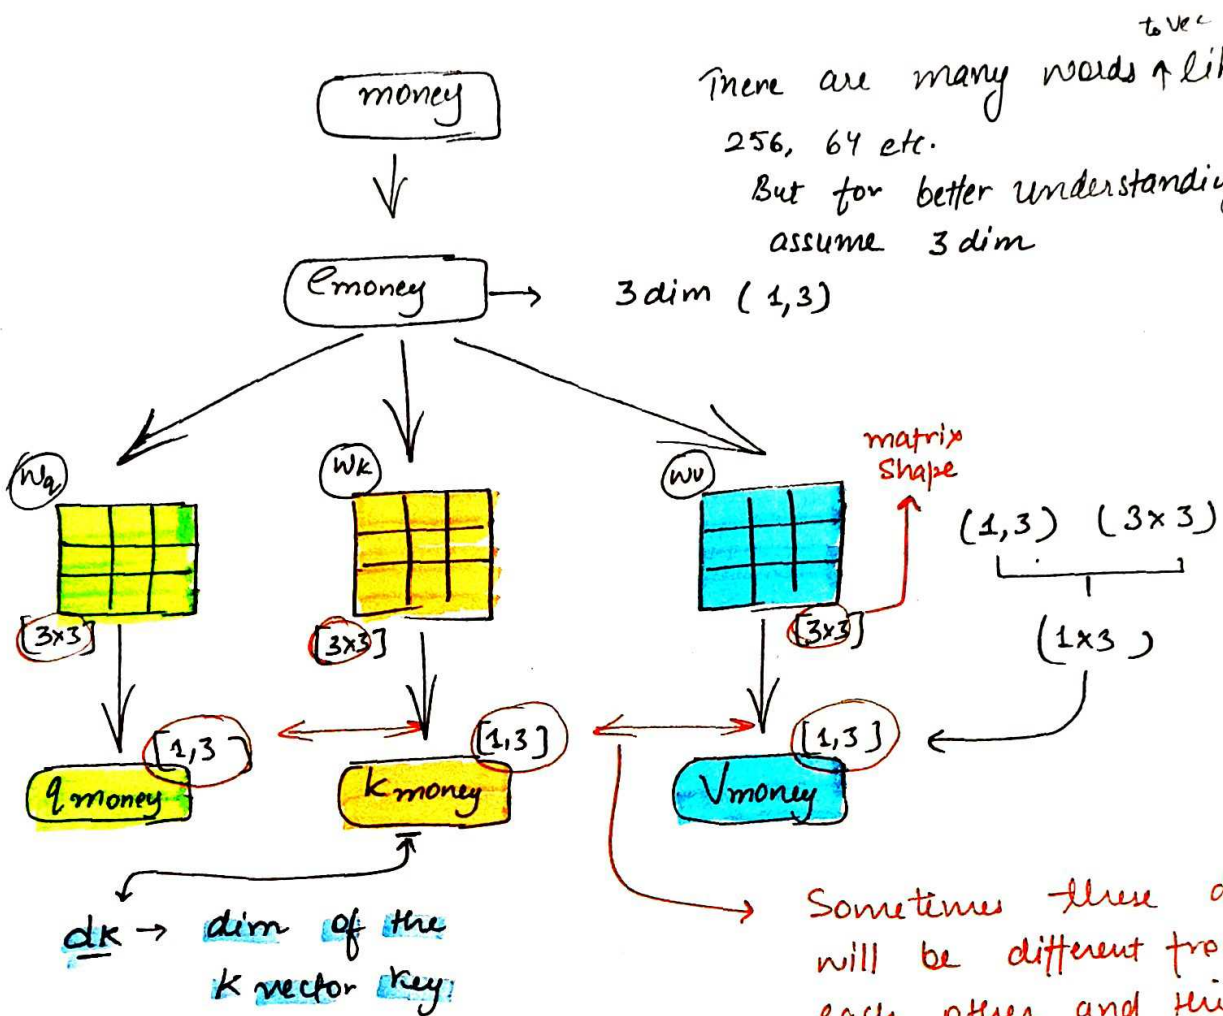 to vec
money
There are many words ↑
256, 64 etc.
But for better understanding
assume 3 dim
emoney → 3 dim (1,3)
matrix
shape
Wq
Wk
Wv
(1,3) (3x3)
[3x3]
[3x3]
[3x3]
(1x3)
[1,3]
[1,3]
[1,3]
qmoney
kmoney
Vmoney
dk → dim of the
k vector key
Sometimes these
will be different
each other and